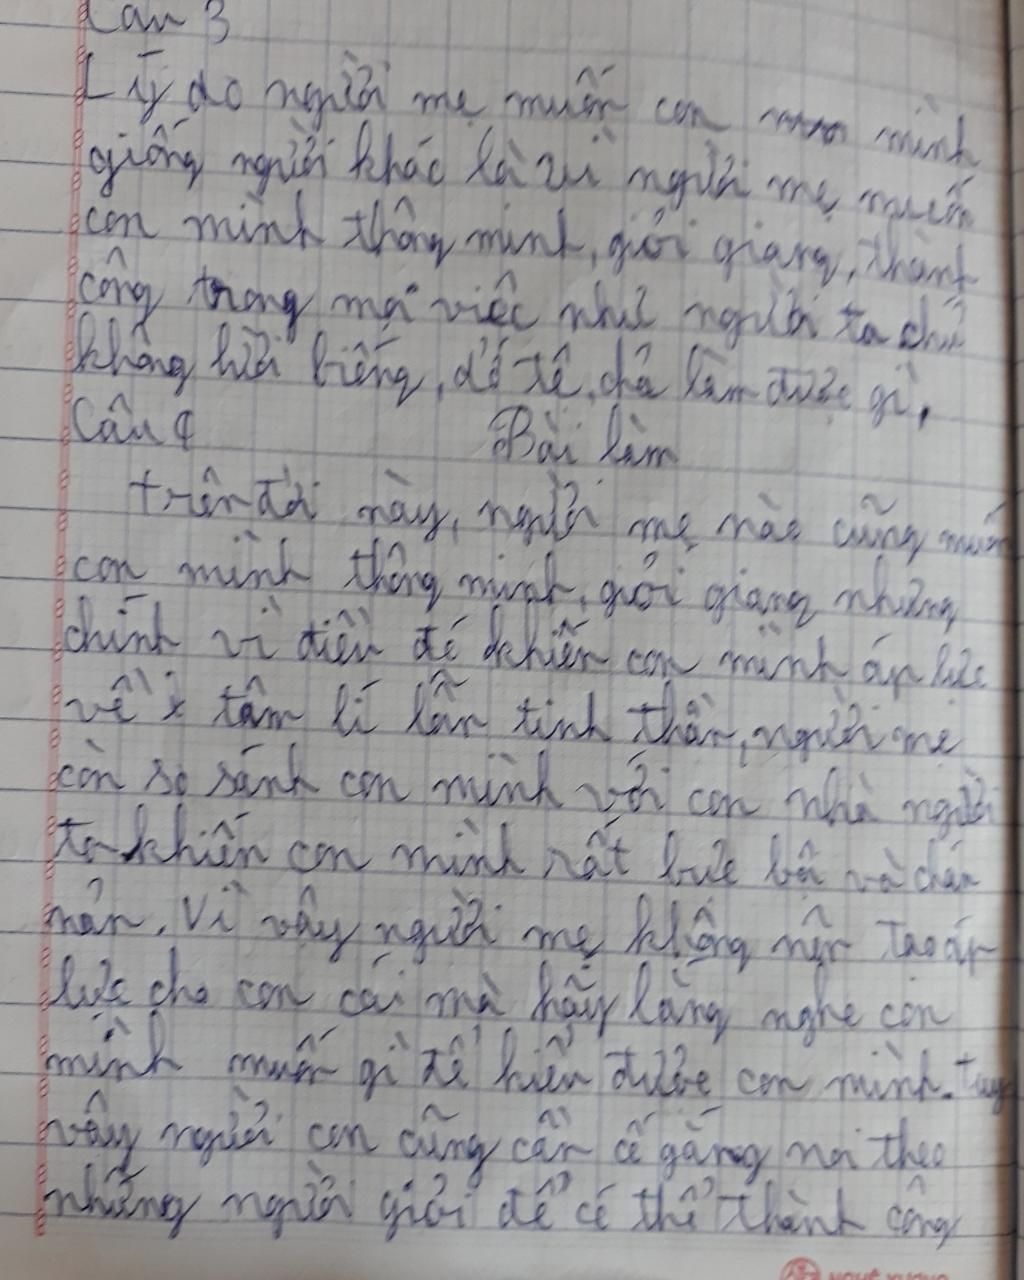 Câu 3
Lý do người mẹ muốn con mình
giống người khác là vì người mẹ muốn
con mình thông minh, giỏi giang, thành
công trong mọi việc như người ta chứ
không lười biếng, dở tệ, chả làm được gì.
Câu 4 Bài làm
trên đời này, người mẹ nào cũng muốn
con mình thông minh, giỏi giang nhưng
chính vì điều đó khiến con mình áp lực
về tâm lí lẫn tinh thần, người mẹ
còn so sánh con mình với con nhà người
ta khiến con mình rất bực bội và chán
nản. Vì vậy người mẹ không nên tạo áp
lực cho con cái mà hãy lắng nghe con
mình muốn gì để hiểu được con mình. tuy
vậy người con cũng cần cố gắng noi theo
những người giỏi để có thể thành công